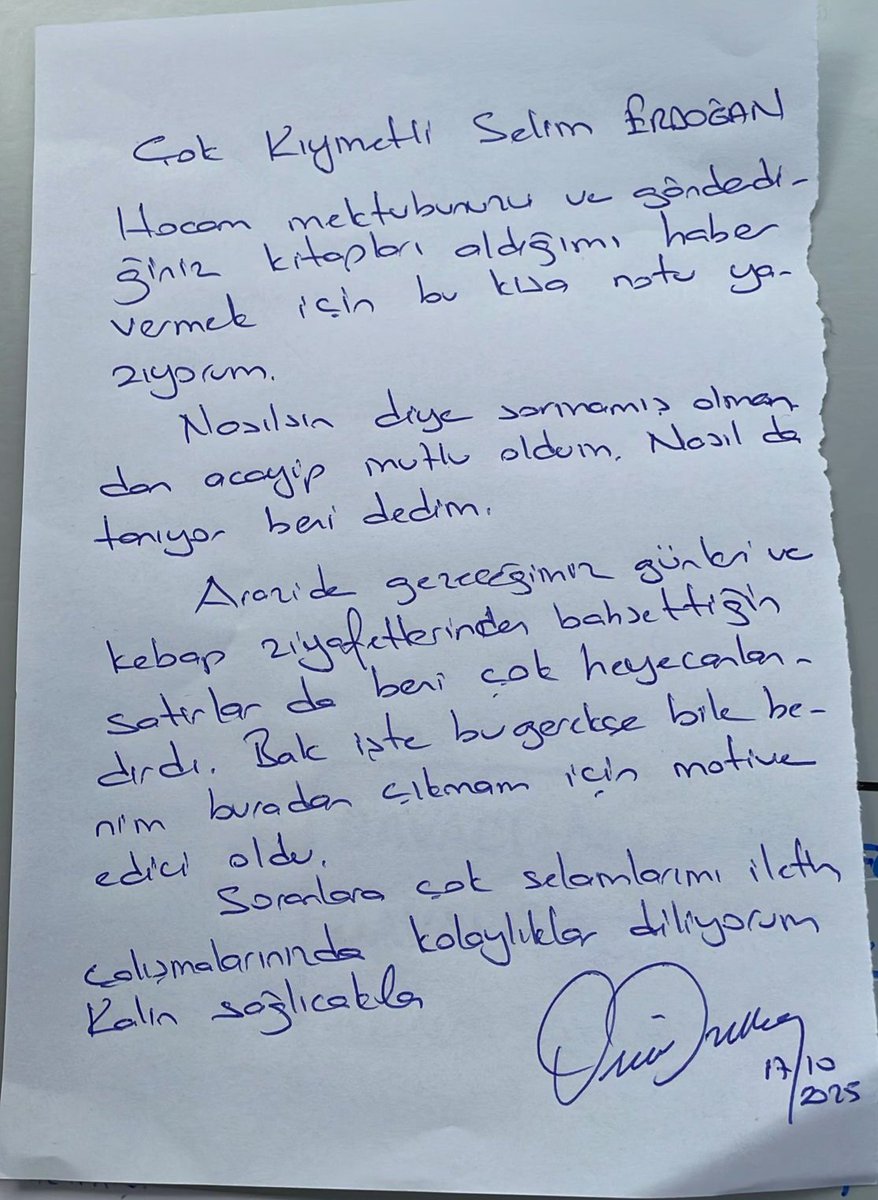 Çok Kıymetli Selim ERDOĞAN
Hocam mektubunuzu ve gönderdi-
ğiniz kitapları aldığımı haber
vermek için bu kısa notu ya-
zıyorum.
Nasılsın diye sormamış olman-
dan acayip mutlu oldum. Nasıl da
tanıyor beni dedim.
Arazide gezeceğimiz günleri ve
kebap ziyafetlerinden bahsettiğin
satırlar da beni çok heyecanlan-
dırdı. Bak işte bu gerekçe bile be-
nim buradan çıkmam için motive
edici oldu.
Soranlara çok selamlarımı iletin
çalışmalarınında kolaylıklar diliyorum
Kalın sağlıcakla
17/10
2025